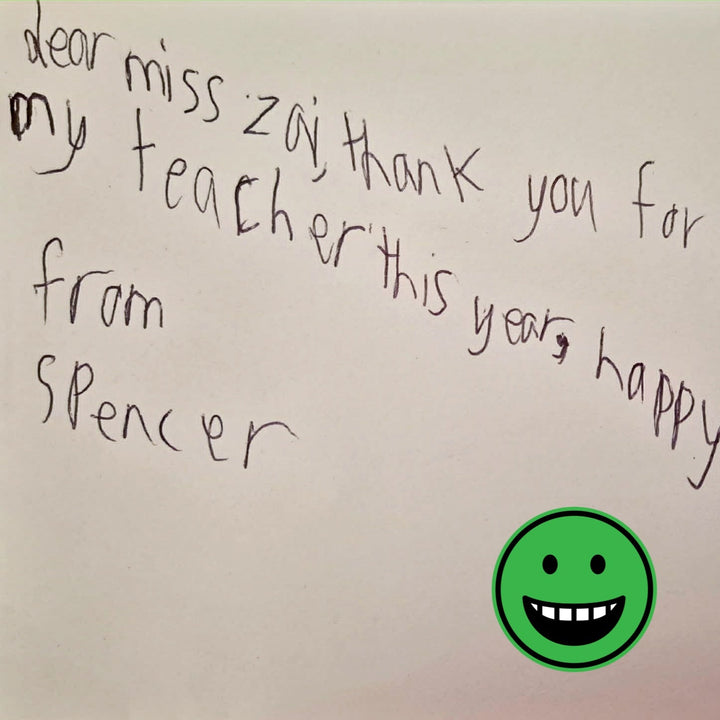 dear miss zaj, thank you for
my teacher this year, happy
from
Spencer